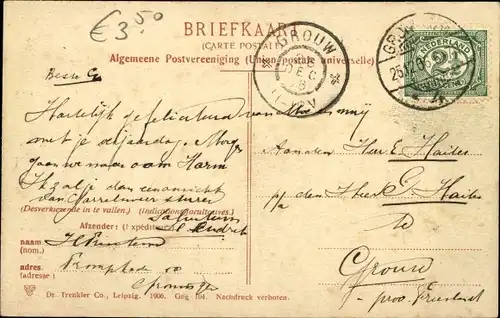 €3.50
BRIEFKAART
(CARTE POSTALE)
Algemeene Postvereeniging (Union postale universelle)
GROUW
DEC
11-12V
GR
NEDERLAND
2½
Beste G
Hartelijk gefeliciteerd van Moe en mij
met je verjaardag. Morgen
gaan we naar oom Harm
Ik zal je dan een ansicht
van sturen
(Desverkiezende in te vullen.) (Indications facultatives.)
Afzender: (Expéditeur:)
naam:
(nom.)
adres:
(adresse:)
Aan den Heer E. Haites
p/a den Heer G. Haites
Te
Grouw
prov. Friesland
Dr. Trenkler Co., Leipzig. 1906. Gng 194. Nachdruck verboten.